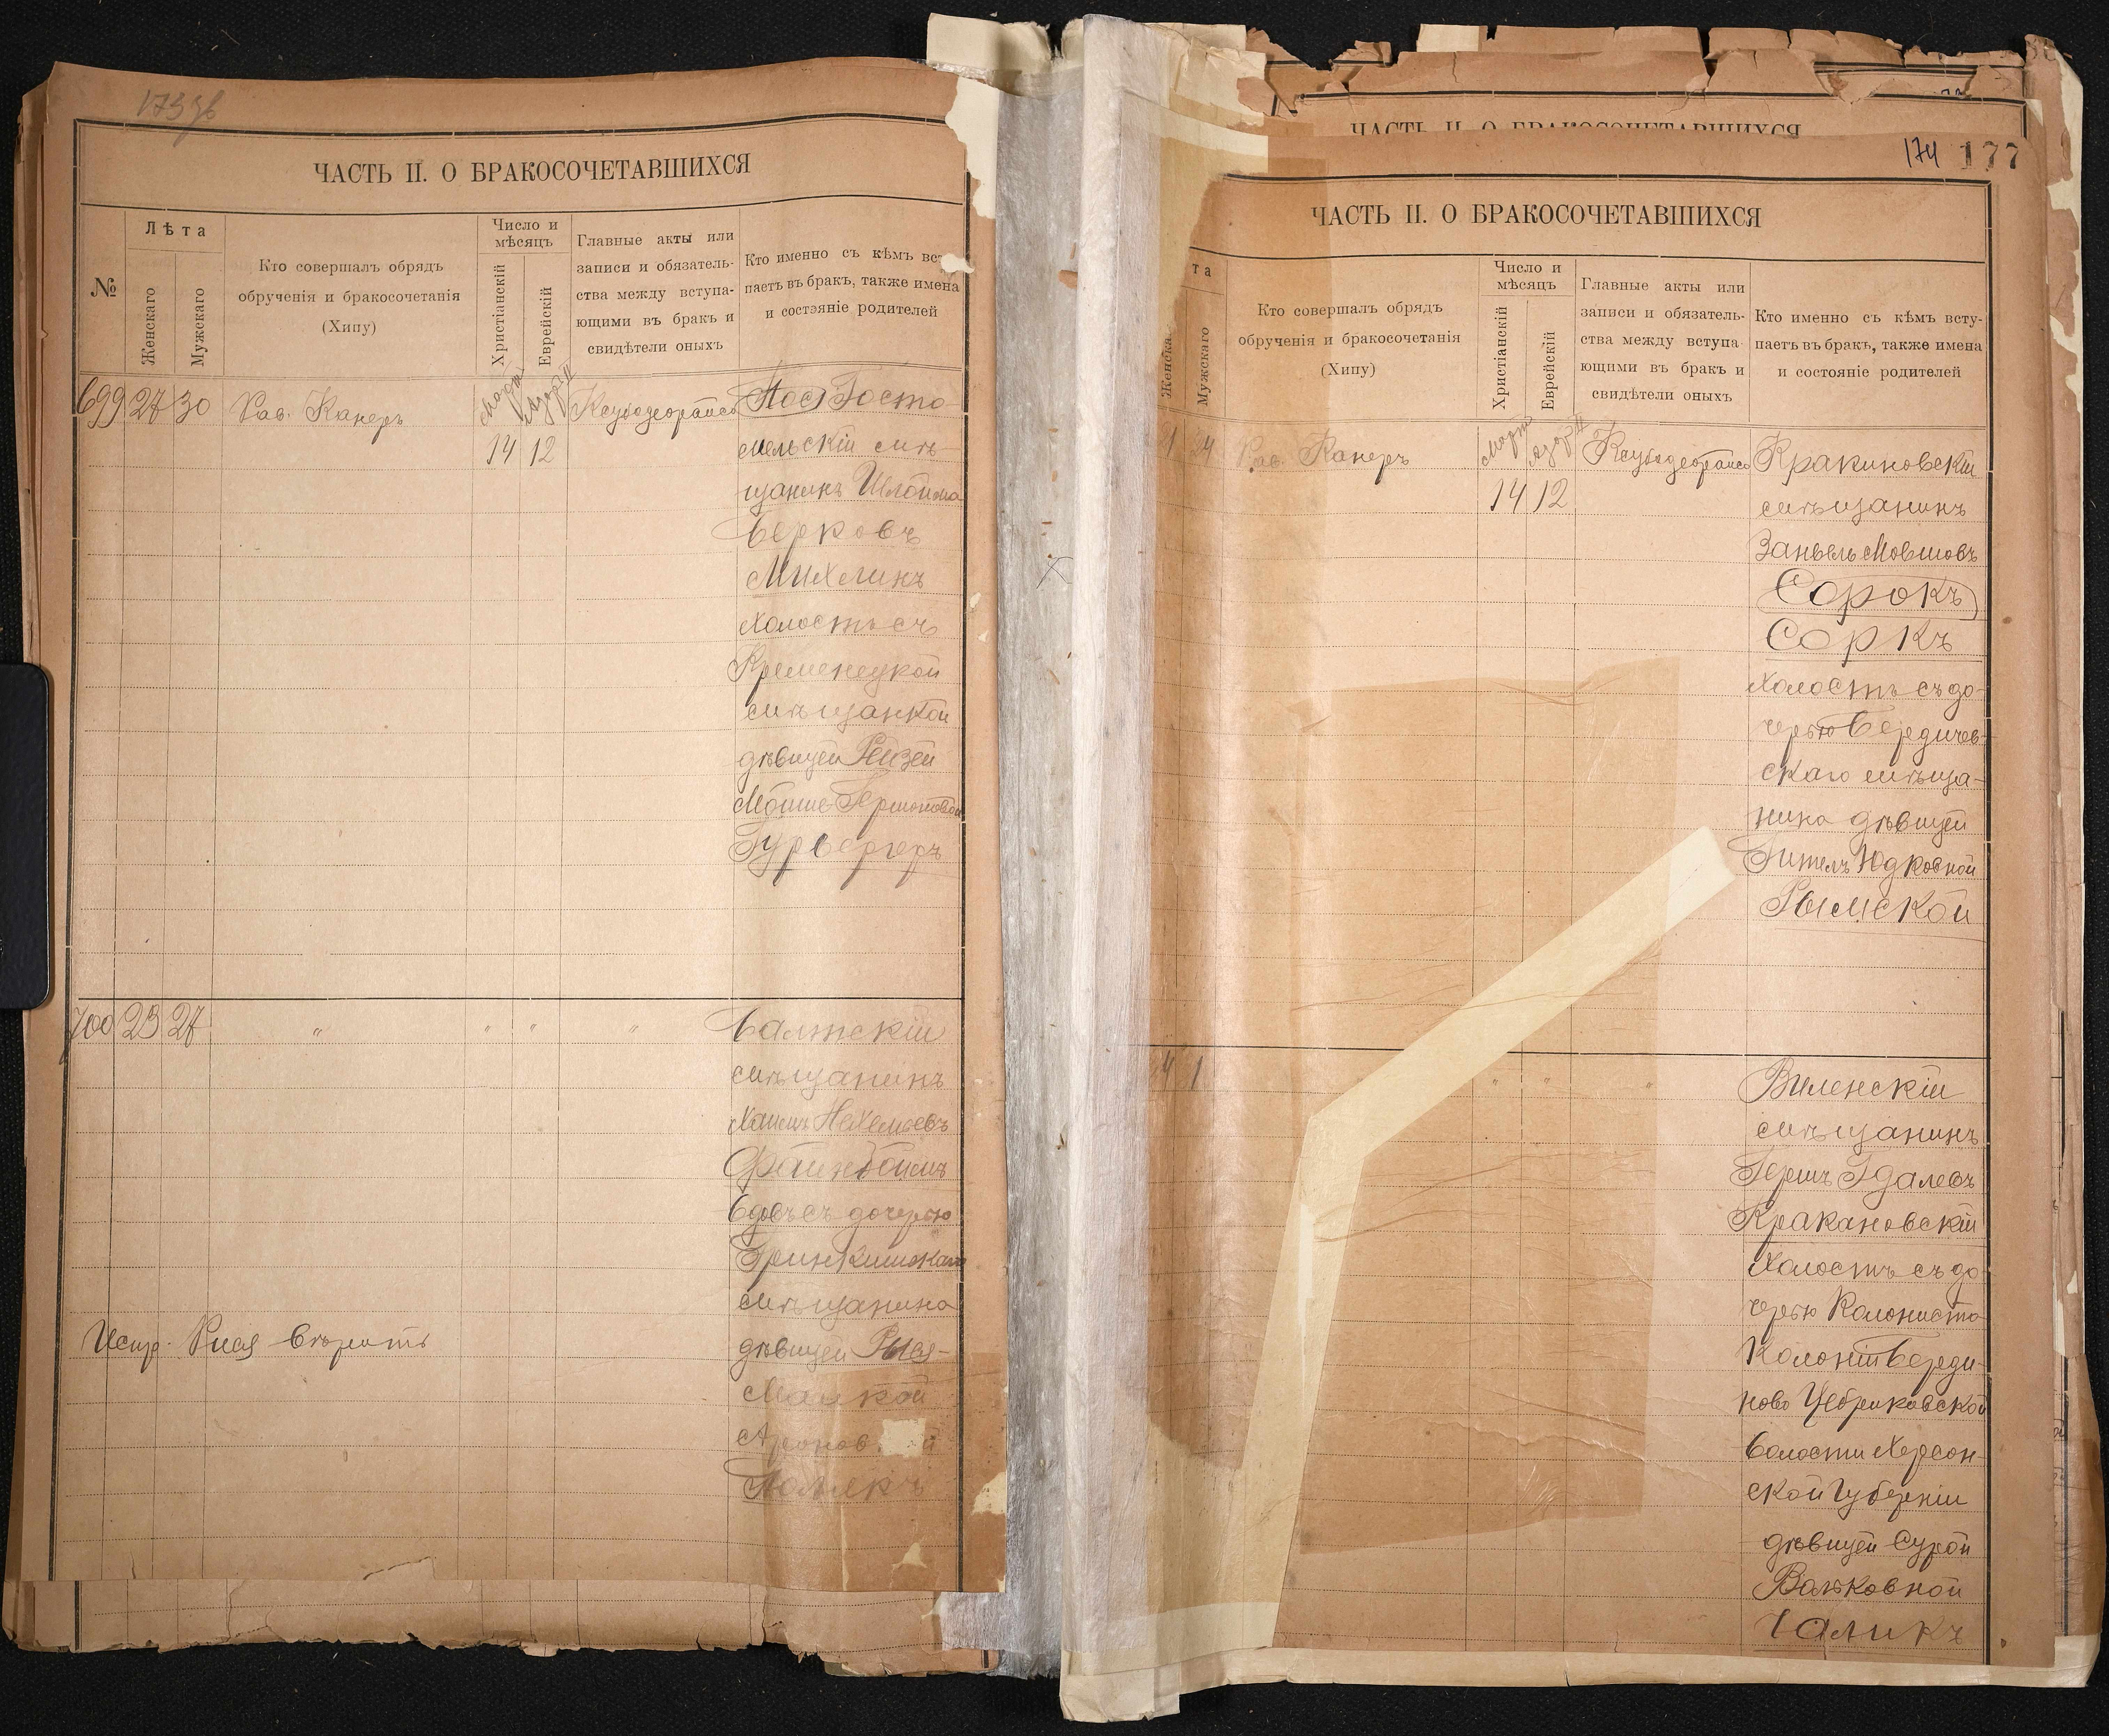 ЧАСТЬ II. О БРАКОСОЧЕТАВШИХСЯ
№
Лѣта
Женскаго
Мужскаго
Кто совершалъ обрядъ
обрученія и бракосочетанія
(Хипу)
Число и
мѣсяцъ
Христіанскій
Еврейскій
Главные акты или
записи и обязатель-
ства между вступа-
ющими въ бракъ и
свидѣтели оныхъ
Кто именно съ кѣмъ всту
паетъ въ брак, также имена
и состэяніе родителей
699 27 30 Рав. Канеръ
Мартъ Адоръ II
14 12
мельскій мѣ-
щанинъ Шлойма
Берковъ
Михлинъ
холостъ съ
Кременецкой
мѣщанкой
дѣвицей Рейзей
Мойше-Гершковой
Гурбергеръ
700 23 27 " " " "
Балтскій
мѣщанинъ
Хаимъ Нехемьевъ
Файнбоймъ
вдовъ съ дочерью
мѣщанина
дѣвицей Рыся-
Малкой
Аронов й
Полякъ
Испр. Рися вѣрить
ЧАСТЬ II. О БРАКОСОЧЕТАВШИХСЯ
174 177
ЧАСТЬ II. О БРАКОСОЧЕТАВШИХСЯ
та
Женска
Мужскаго
Кто совершалъ обрядъ
обрученія и бракосочетанія
(Хипу)
Число и
мѣсяцъ
Христіанскій
Еврейскій
Главные акты или
записи и обязатель-
ства между вступа-
ющими въ бракъ и
свидѣтели оныхъ
Кто именно съ кѣмъ всту-
паетъ въ брак, также имена
и состояніе родителей
1 24 Рав. Канеръ
Мартъ Адоръ II
14 12
Кракиновскій
мѣщанинъ
Занвель Мовшовъ
(Сорокъ)
Соркъ
холостъ съ до-
черью Бердичев-
скаго мѣща-
нина дѣвицей
Гитель Юдковной
Рымской
4 1 " " "
Виленскій
мѣщанинъ
Гершъ Гдалевъ
Кракановскій
холостъ съ до-
черью Колониста
Колоніи Береди-
ново Цебриковской
волости Херсон-
ской Губерніи
дѣвицей Сурой
Вольковной
Чаликъ